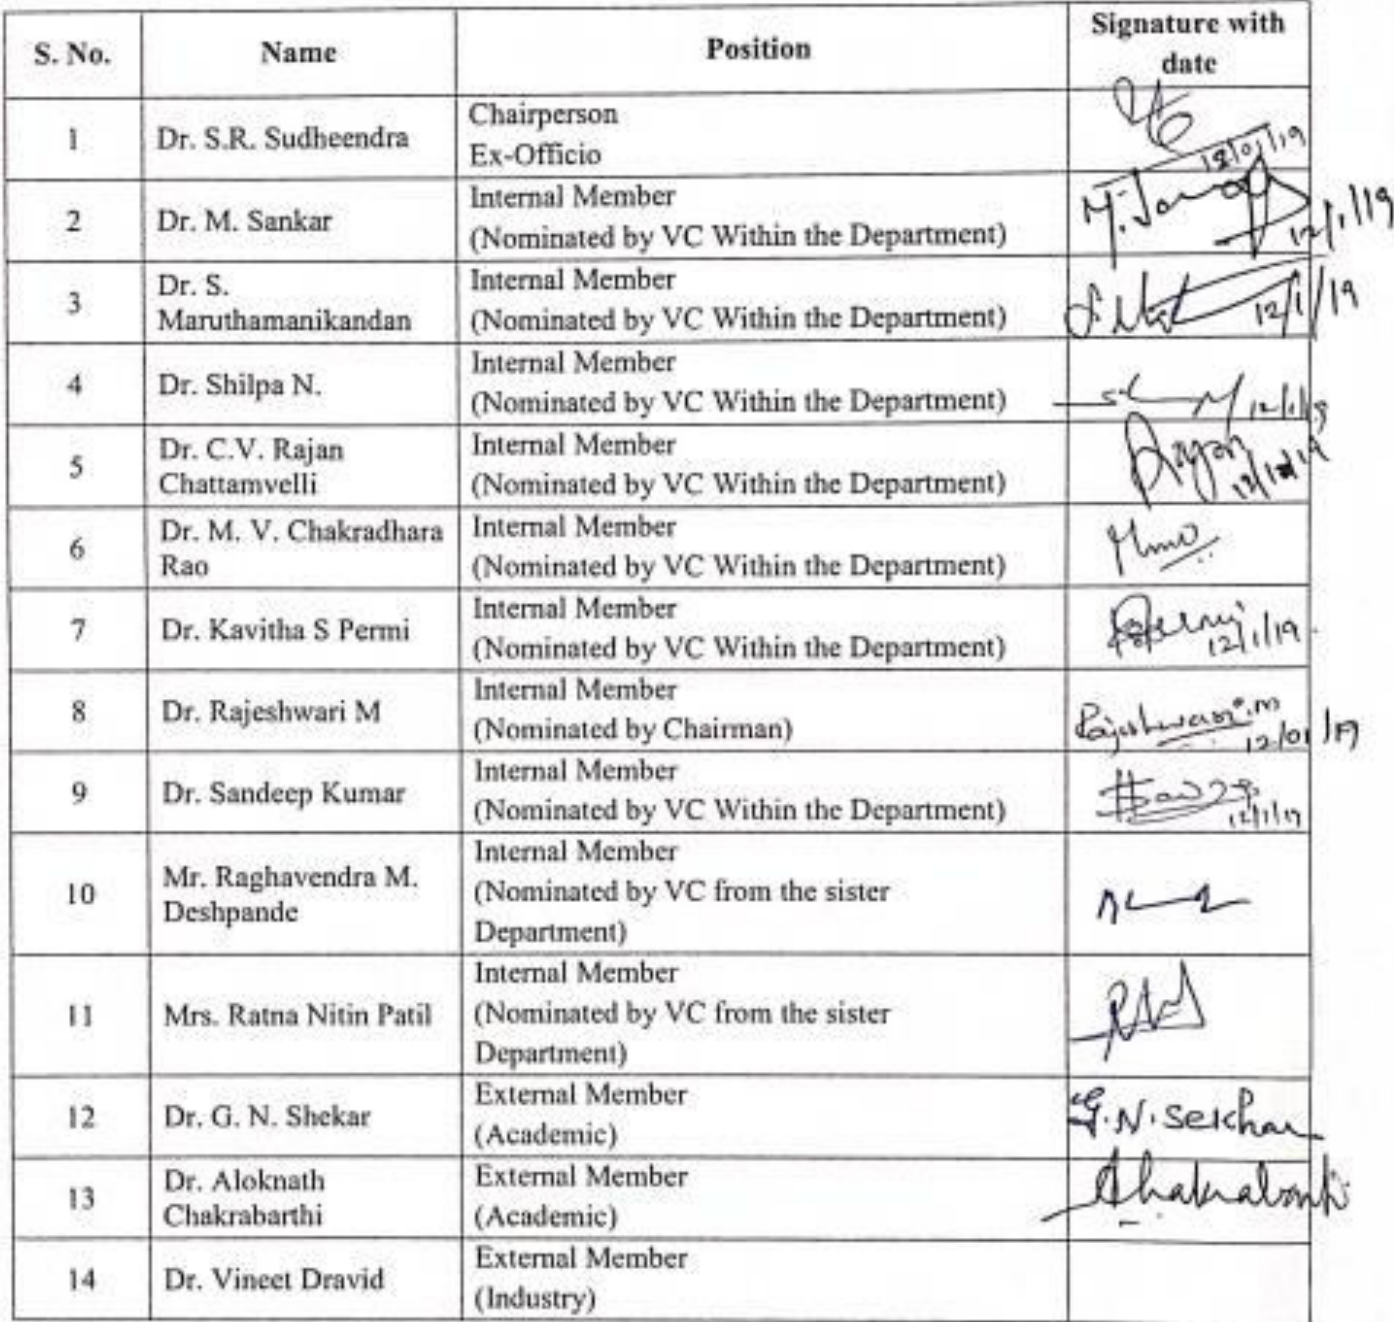 S. No.
Name
Position
Signature with
date
1
Dr. S.R. Sudheendra
Chairperson
Ex-Officio
2
Dr. M. Sankar
Internal Member
(Nominated by VC Within the Department)
12/1/19
3
Dr. S.
Maruthamanikandan
Internal Member
(Nominated by VC Within the Department)
12/1/19
4
Dr. Shilpa N.
Internal Member
(Nominated by VC Within the Department)
5
Dr. C.V. Rajan
Chattamvelli
Internal Member
(Nominated by VC Within the Department)
6
Dr. M. V. Chakradhara
Rao
Internal Member
(Nominated by VC Within the Department)
7
Dr. Kavitha S Permi
Internal Member
(Nominated by VC Within the Department)
12/1/19
8
Dr. Rajeshwari M
Internal Member
(Nominated by Chairman)
Rajeshwari.m
12/01/19
9
Dr. Sandeep Kumar
Internal Member
(Nominated by VC Within the Department)
12/1/19
10
Mr. Raghavendra M.
Deshpande
Internal Member
(Nominated by VC from the sister
Department)
11
Mrs. Ratna Nitin Patil
Internal Member
(Nominated by VC from the sister
Department)
12
Dr. G. N. Shekar
External Member
(Academic)
G.N.Sekhar
13
Dr. Aloknath
Chakrabarthi
External Member
(Academic)
14
Dr. Vineet Dravid
External Member
(Industry)